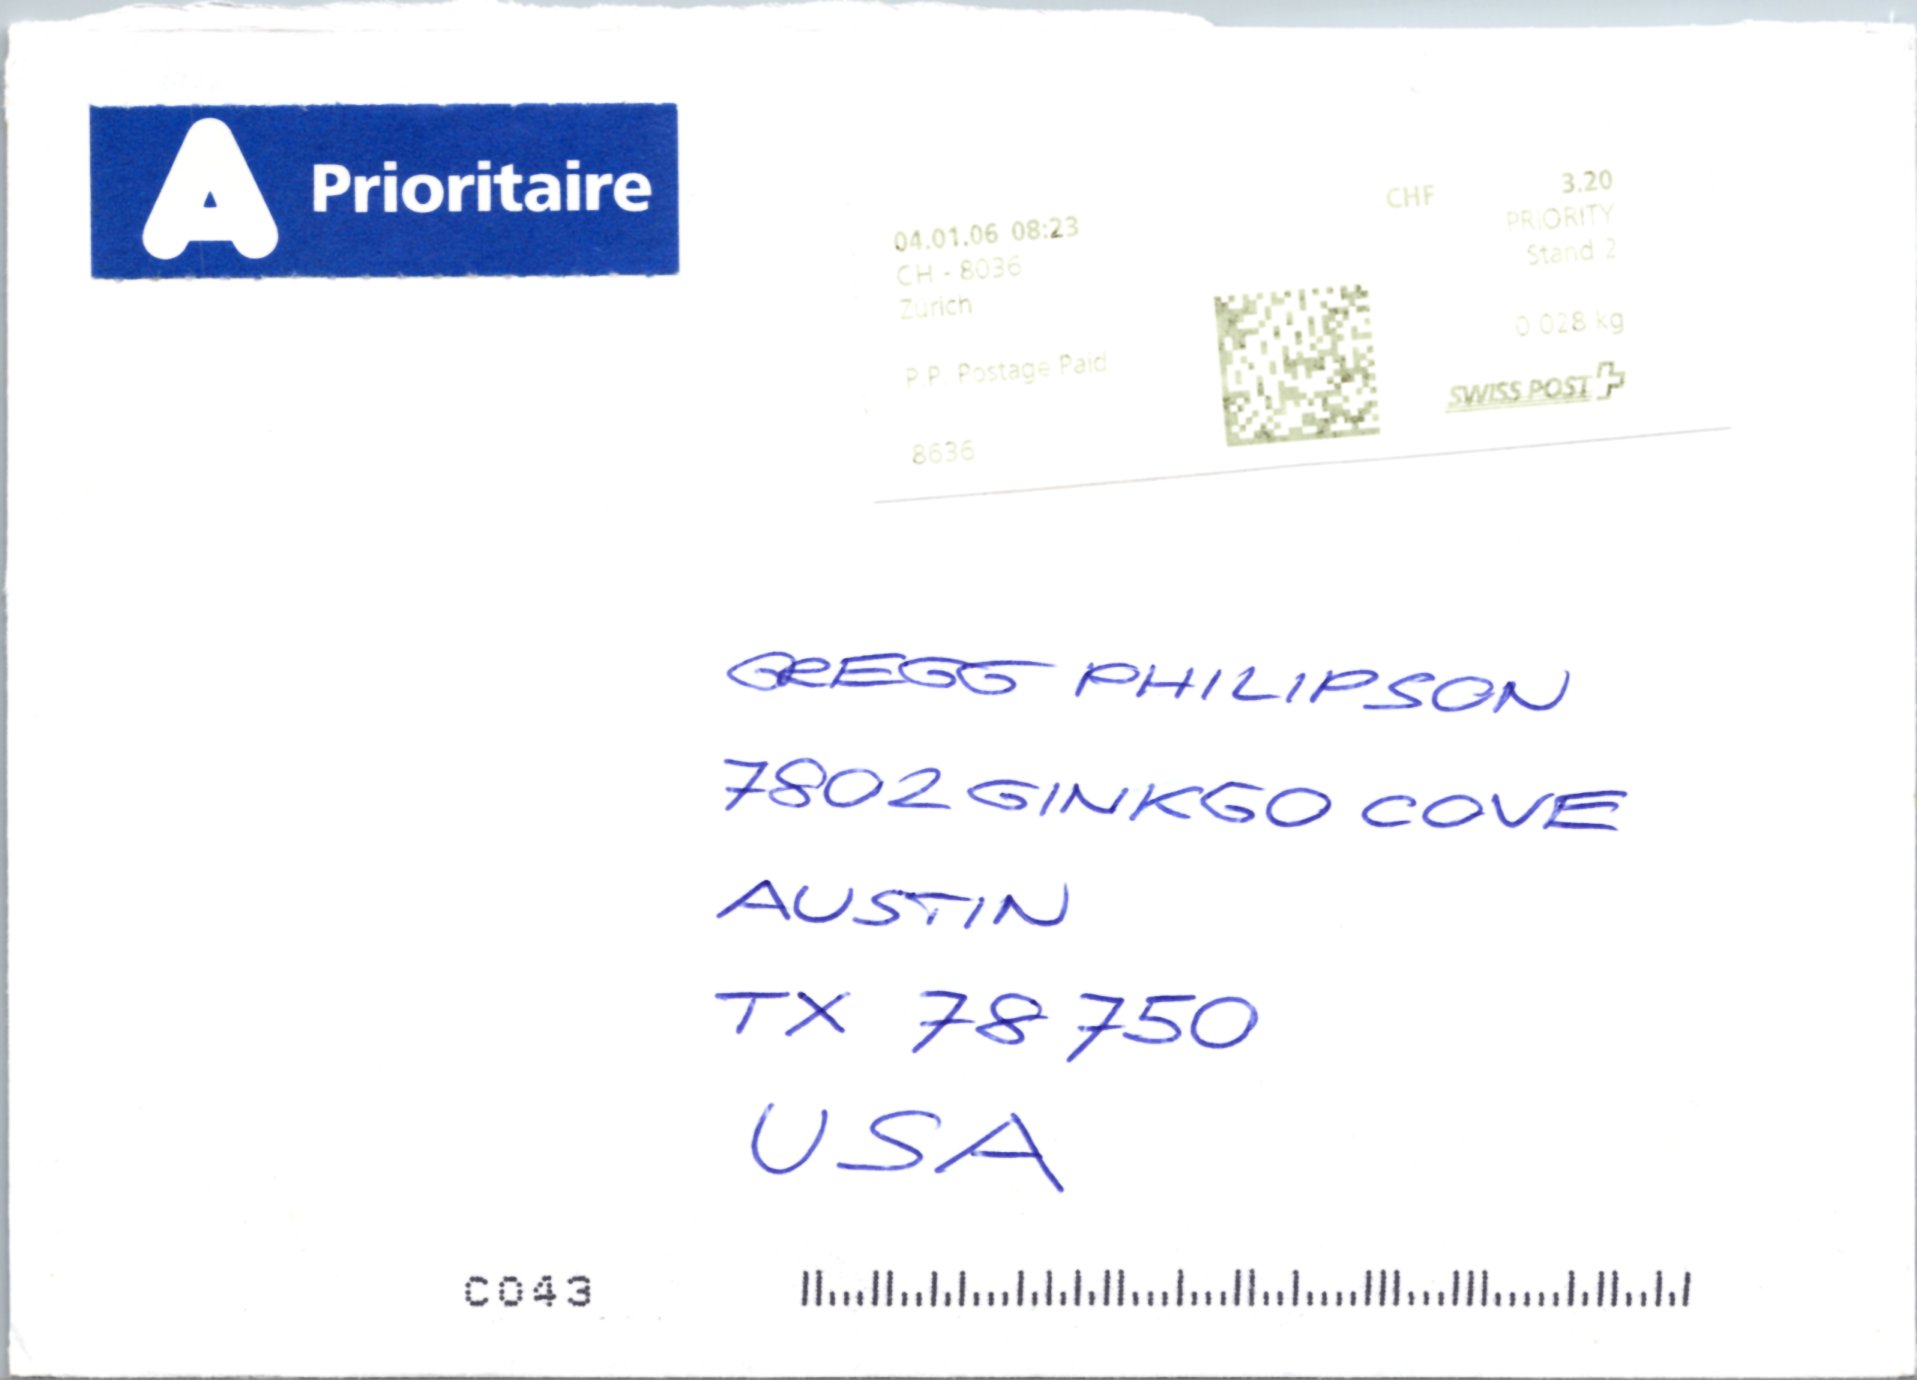 A Prioritaire
04.01.06 08:23
CH - 8036
Zürich
P.P. Postage Paid
8636
CHF 3.20
PRIORITY
Stand 2
0.028 kg
SWISS POST
GREGG PHILIPSON
7802 GINKGO COVE
AUSTIN
TX 78750
USA
C043